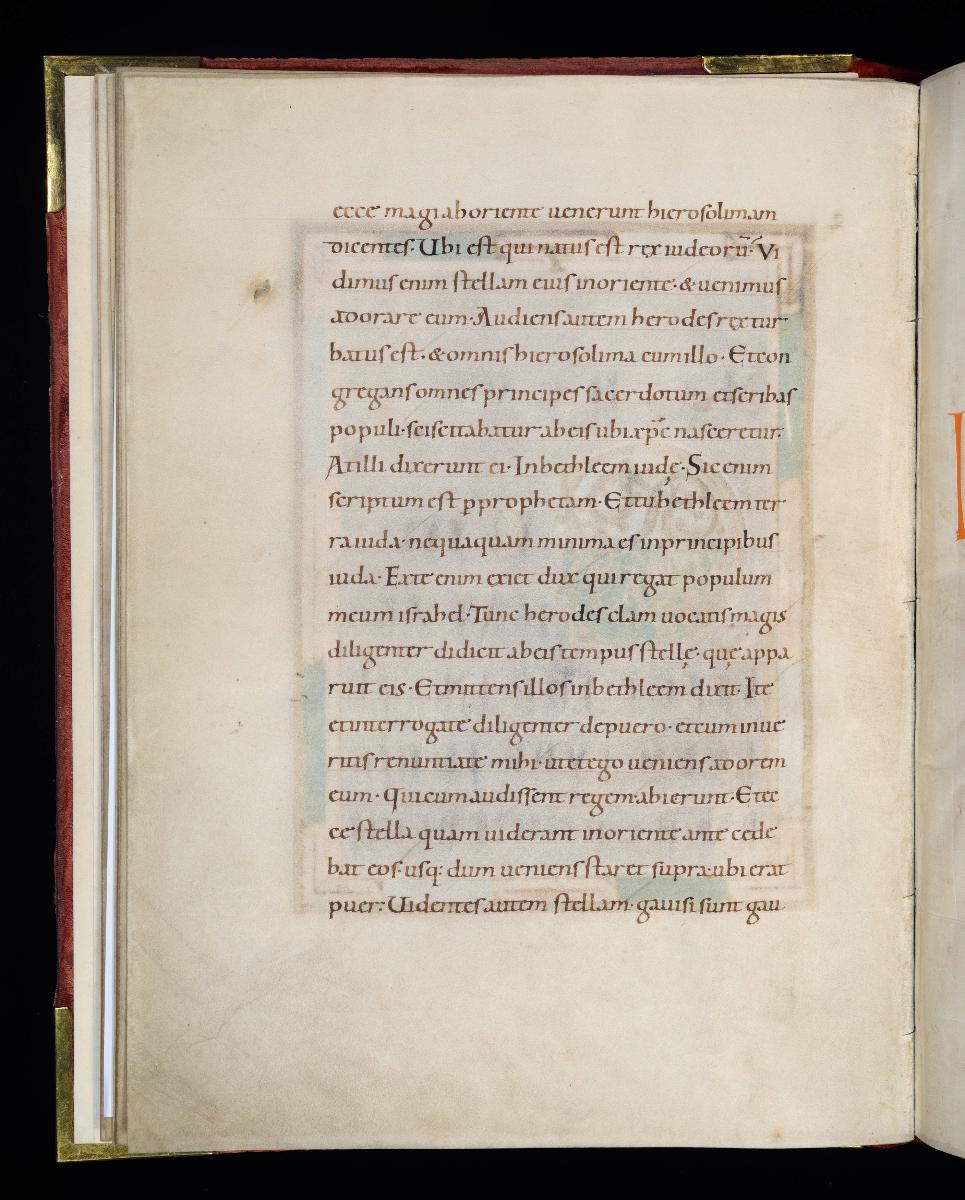 ecce magi ab oriente uenerunt hierosolimam
dicentes· Ubi est qui natus est rex iudeorū· Vi
dimus enim stellam eius in oriente· & uenimus
adorare eum· Audiens autem herodes rex tur
batus est· & omnis hierosolima cum illo· Et con
gregans omnes principes sacerdotum et scribas
populi· sciscitabatur ab eis ubi xp̄c nasceretur·
At illi dixerunt ei· In bethleem iudę· Sic enim
scriptum est ꝑ prophetam· Et tu bethleem ter
ra iuda· nequaquam minima es in principibus
iuda· Ex te enim exiet dux qui regat populum
meum israhel· Tunc herodes clam uocatis magis
diligenter didicit ab eis tempus stellę· quę appa
ruit eis· Et mittens illos in bethleem dixit· Ite
et interrogate diligenter de puero· et cum inue
ritis renuntiate mihi· ut et ego ueniens adorem
eum· Qui cum audissent regem· abierunt· Et ec
ce stella quam uiderant in oriente ante cede
bat eos· usq: dum ueniens staret supra· ubi erat
puer· Uidentes autem stellam· gauisi sunt gau